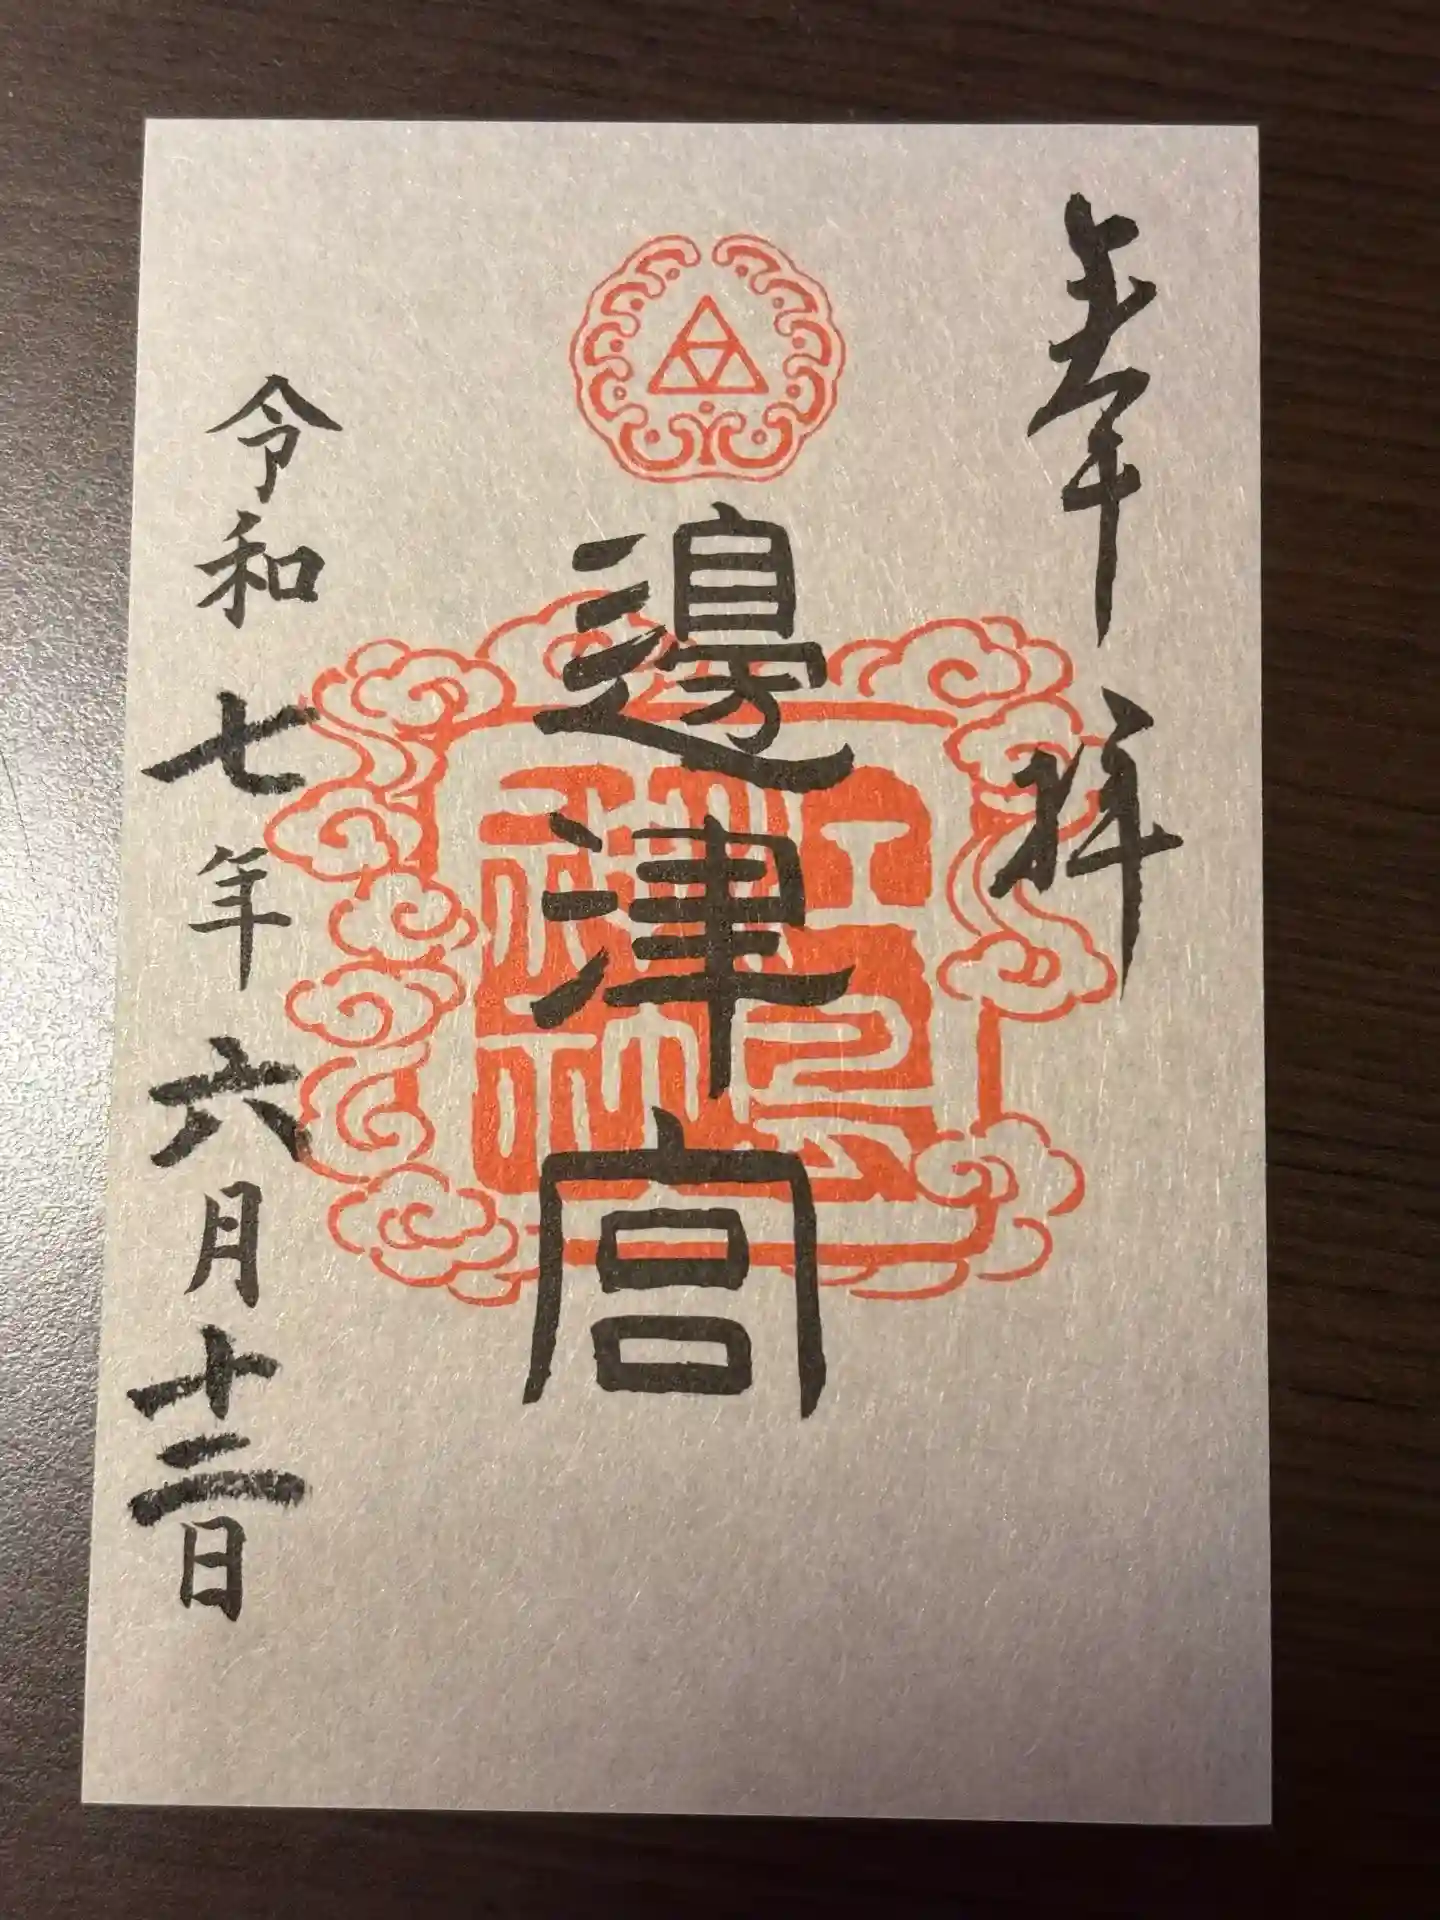 奉拝
邊津宮
江島神社
令和七年六月十二日